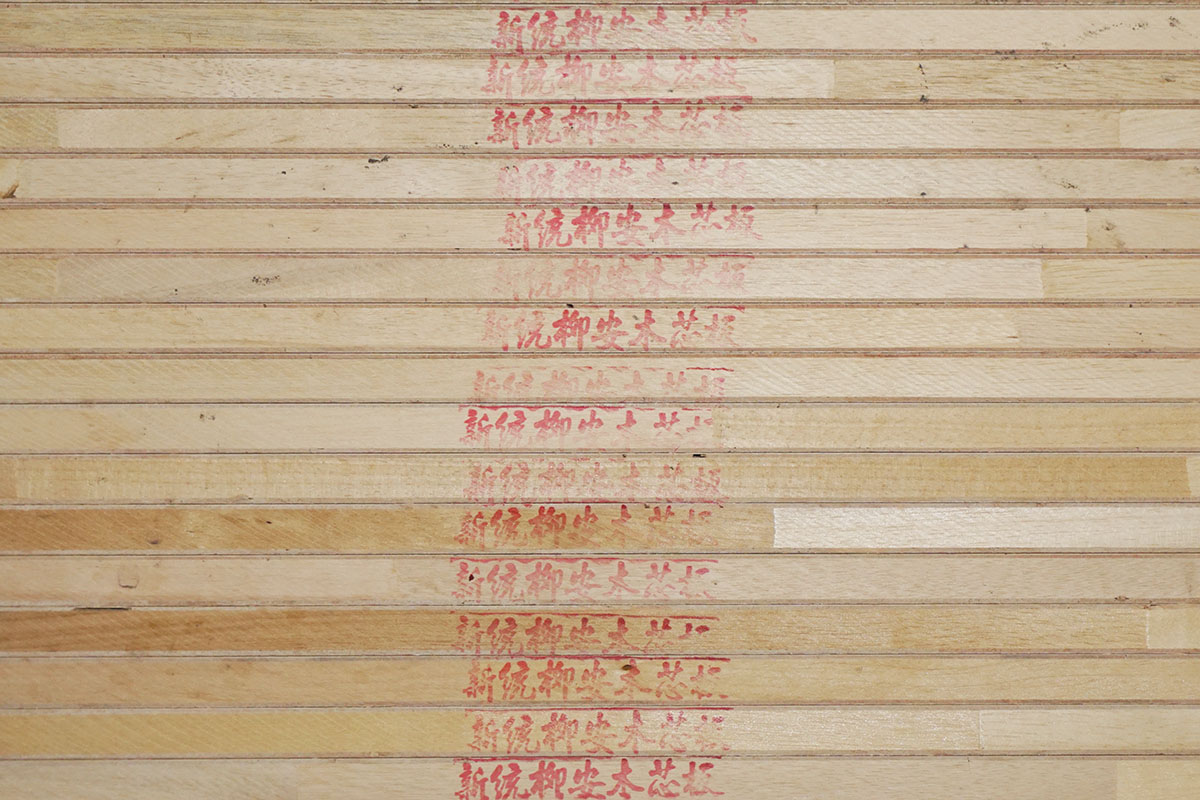 新統柳安木芯板
新統柳安木芯板
新統柳安木芯板
新統柳安木芯板
新統柳安木芯板
新統柳安木芯板
新統柳安木芯板
新統柳安木芯板
新統柳安木芯板
新統柳安木芯板
新統柳安木芯板
新統柳安木芯板
新統柳安木芯板
新統柳安木芯板
新統柳安木芯板
新統柳安木芯板